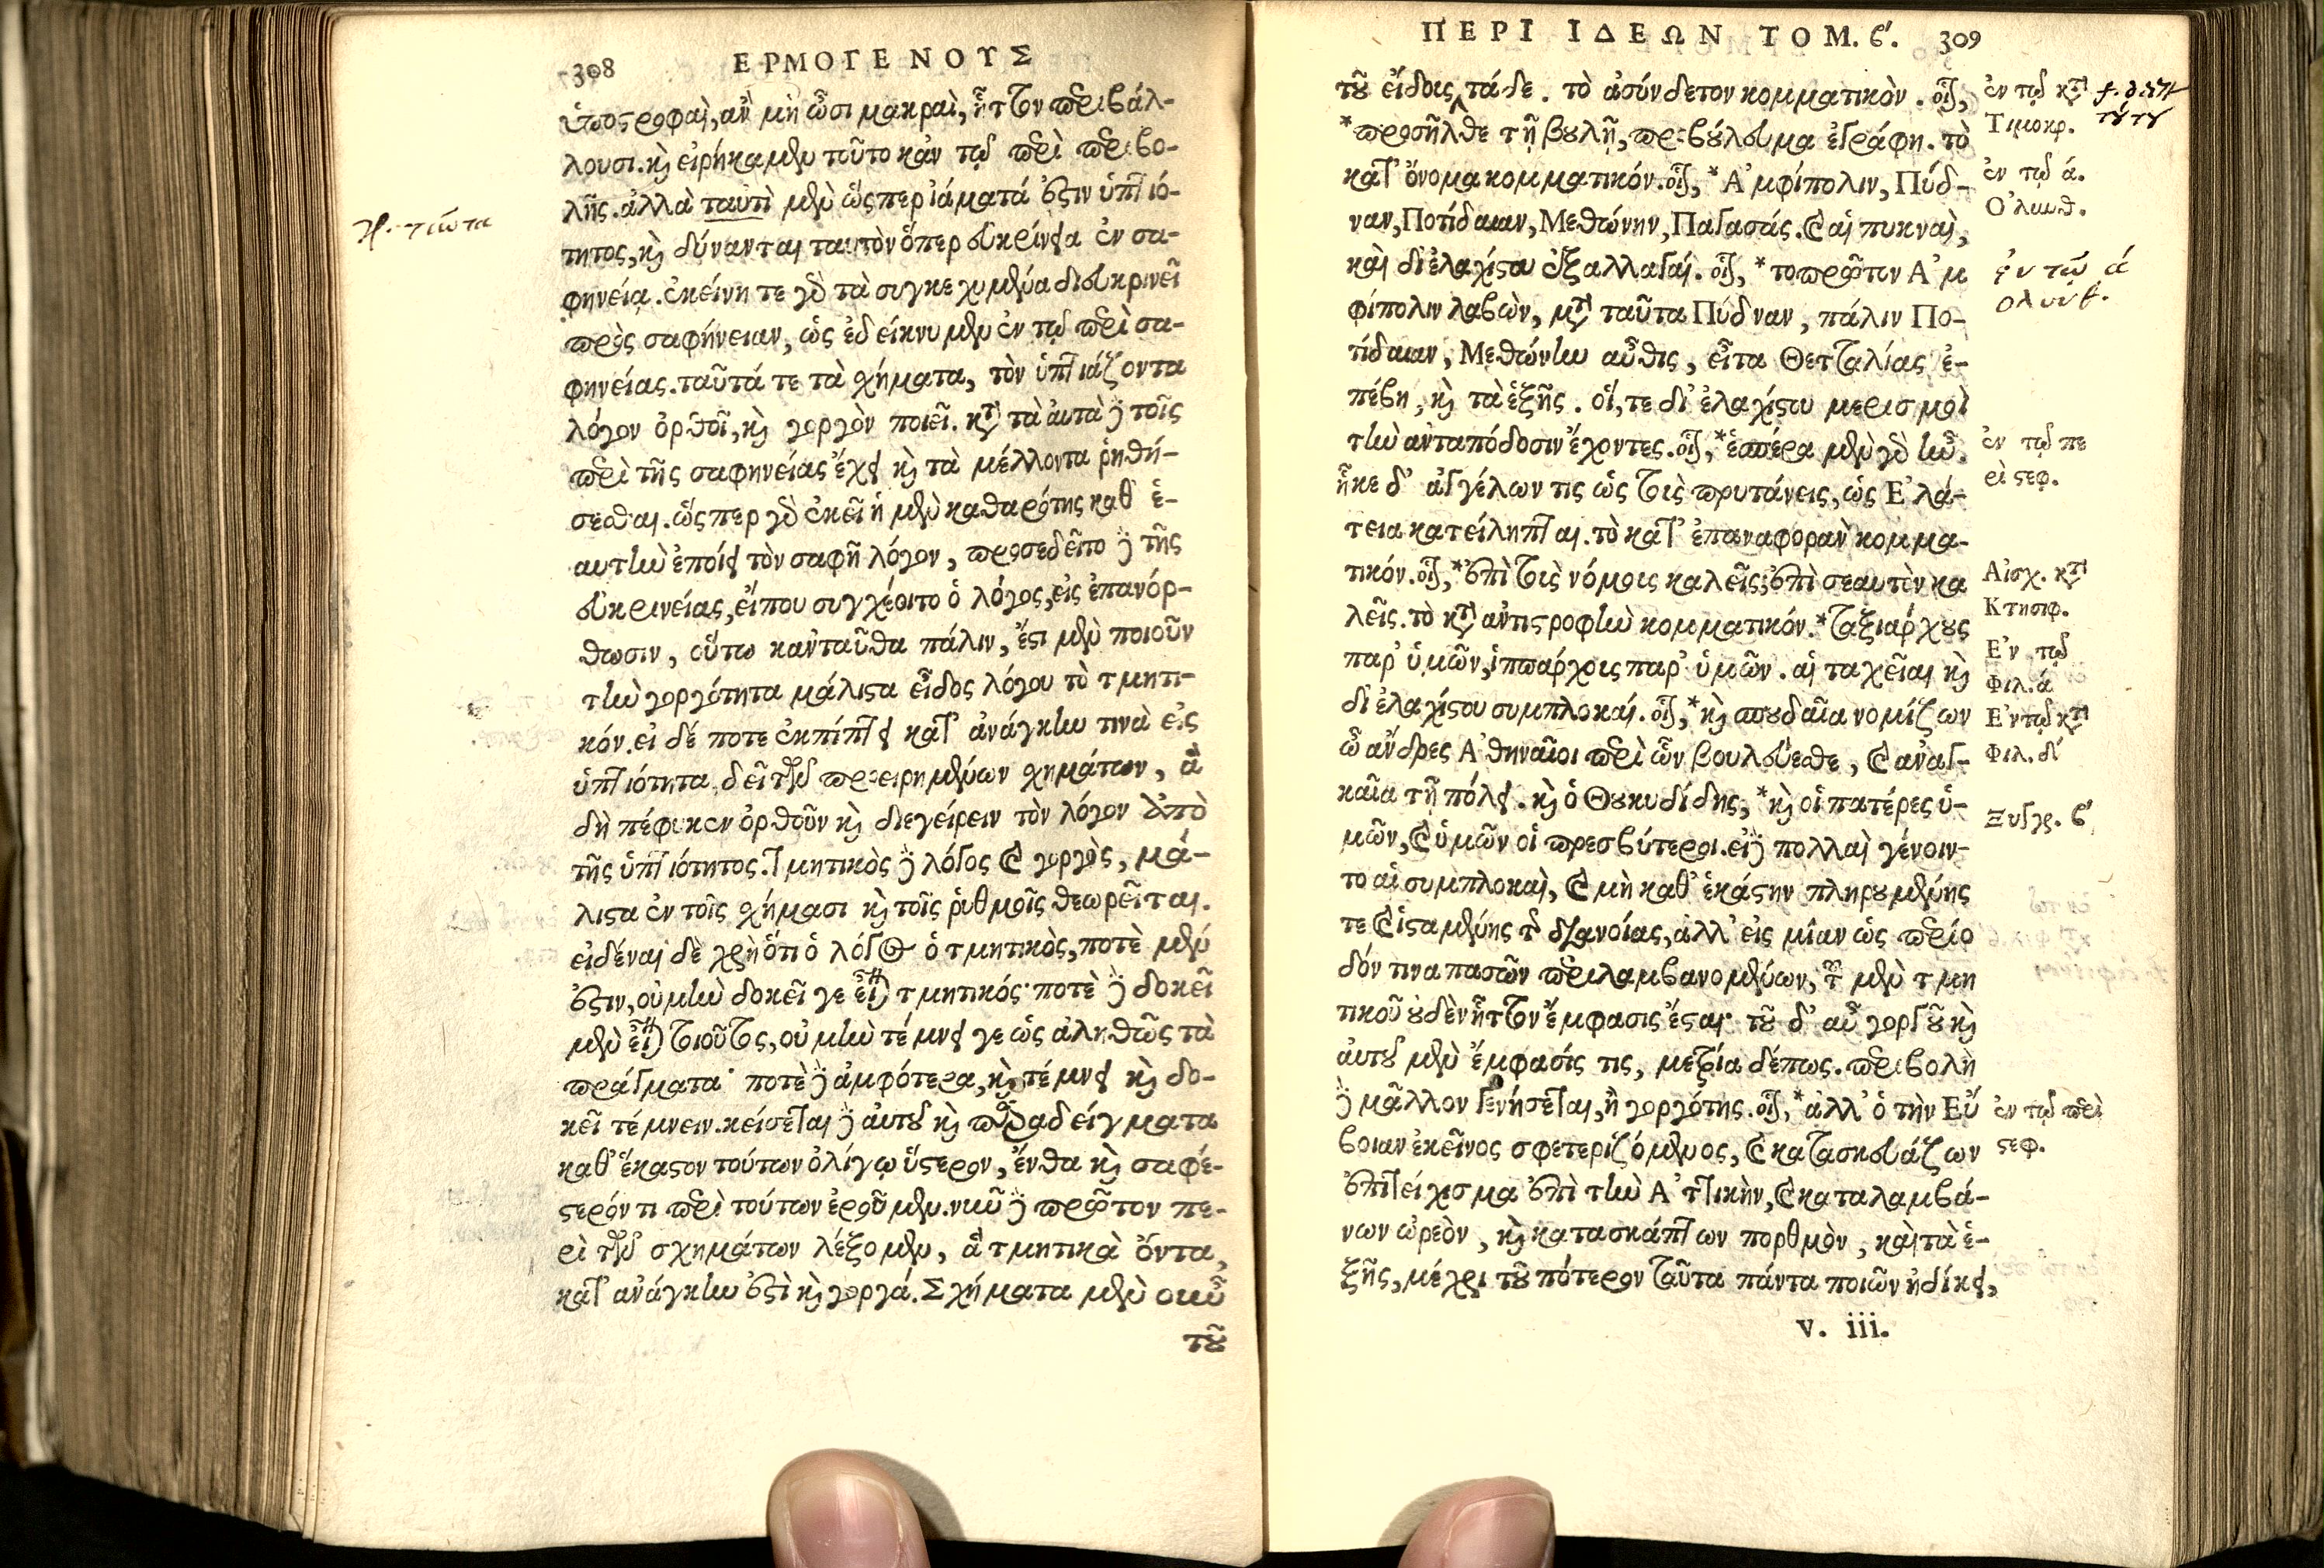 308 ΕΡΜΟΓΕΝΟΥΣ
ὑποστροφαὶ, ἂν μὴ ὦσι μακραὶ, ἧττον περιβάλ-
λουσι. καὶ εἰρήκαμεν τοῦτο κἀν τῷ περὶ περιβο-
λῆς. ἀλλὰ ταυτὶ μὲν ὥσπερ ἰάματά ἐστιν ὑπτιό-
τητος, καὶ δύνανται ταυτὸν ὅπερ εὐκρίνεια ἐν σα-
φηνείᾳ. ἐκείνη τε γὰρ τὰ συγκεχυμένα διευκρινεῖ
πρὸς σαφήνειαν, ὡς ἐδείκνυμεν ἐν τῷ περὶ σα-
φηνείας. ταῦτά τε τὰ σχήματα, τὸν ὑπτιάζοντα
λόγον ὀρθοῖ, καὶ γοργὸν ποιεῖ. κατὰ τὰ αὐτὰ δὲ τοῖς
περὶ τῆς σαφηνείας ἔχει καὶ τὰ μέλλοντα ῥηθή-
σεσθαι. ὥσπερ γὰρ ἐκεῖ ἡ μὲν καθαρότης καθ' ἑ-
αυτὴν ἐποίει τὸν σαφῆ λόγον, προσεδεῖτο δὲ τῆς
εὐκρινείας, εἴπου συγχέοιτο ὁ λόγος, εἰς ἐπανόρ-
θωσιν, οὕτω κἀνταῦθα πάλιν, ἔστι μὲν ποιοῦν
τὴν γοργότητα μάλιστα εἶδος λόγου τὸ τμητι-
κόν. εἰ δέ ποτε ἐκπίπτει κατ' ἀνάγκην τινὰ εἰς
ὑπτιότητα, δεῖ τῶν προειρημένων σχημάτων, ἃ
δὴ πέφυκεν ὀρθοῦν καὶ διεγείρειν τὸν λόγον ἀπὸ
τῆς ὑπτιότητος. Τμητικὸς δὲ λόγος καὶ γοργὸς, μά-
λιστα ἐν τοῖς σχήμασι καὶ τοῖς ῥυθμοῖς θεωρεῖται.
εἰδέναι δὲ χρὴ ὅτι ὁ λόγος ὁ τμητικὸς, ποτὲ μὲν
ἐστιν, οὐ μὴν δοκεῖ γε εἶναι τμητικός· ποτὲ δὲ δοκεῖ
μὲν εἶναι τοιοῦτος, οὐ μὴν τέμνει γε ὡς ἀληθῶς τὰ
πράγματα· ποτὲ δὲ ἀμφότερα, καὶ τέμνει καὶ δο-
κεῖ τέμνειν. κείσεται δὲ αὐτοῦ καὶ παραδείγματα
καθ' ἕκαστον τούτων ὀλίγῳ ὕστερον, ἔνθα καὶ σαφέ-
στερόν τι περὶ τούτων ἐροῦμεν. νυνὶ δὲ πρῶτον πε-
ρὶ τῶν σχημάτων λέξομεν, ἃ τμητικὰ ὄντα,
κατ' ἀνάγκην ἐστὶ καὶ γοργά. Σχήματα μὲν οὖν
τοῦ
ΠΕΡΙ ΙΔΕΩΝ ΤΟΜ. β'. 309
τοῦ εἴδους τά-δε. τὸ ἀσύνδετον κομματικὸν. οἷον,
*προσῆλθε τῇ βουλῇ, προβούλευμα ἐγράφη. τὸ
κατ' ὄνομα κομματικόν. οἷον, *Ἀμφίπολιν, Πύδ-
ναν, Ποτίδαιαν, Μεθώνην, Παγασάς. καὶ αἱ πυκναὶ,
καὶ δι' ἐλαχίστου ἐξαλλαγαί. οἷον, *τὸ πρῶτον Ἀμ
φίπολιν λαβὼν, μετὰ ταῦτα Πύδναν, πάλιν Πο-
τίδαιαν, Μεθώνην αὖθις, εἶτα Θετταλίας ἐ-
πέβη, καὶ τὰ ἑξῆς. οἵ, τε δι' ἐλαχίστου μερισμοὶ
τὴν ἀνταπόδοσιν ἔχοντες. οἷον, *ἑσπέρα μὲν γὰρ ἦν.
ἧκε δ' ἀγγέλων τις ὡς τοὺς πρυτάνεις, ὡς Ἐλά-
τεια κατείληπται. τὸ κατ' ἐπαναφορὰν κομμα-
τικόν. οἷον, *ἐπὶ τοὺς νόμους καλεῖς; ἐπὶ σεαυτὸν κα
λεῖς. τὸ κατὰ ἀντιστροφὴν κομματικόν. *ταξιάρχους
παρ' ὑμῶν, ἱππάρχους παρ' ὑμῶν. αἱ ταχεῖαι καὶ
δι' ἐλαχίστου συμπλοκαί. οἷον, *καὶ σπουδαῖα νομίζων
ὦ ἄνδρες Ἀθηναῖοι περὶ ὧν βουλεύεσθε, καὶ ἀναγ-
καῖα τῇ πόλει. καὶ ὁ Θουκυδίδης, *καὶ οἱ πατέρες ὑ-
μῶν, καὶ ὑμῶν οἱ πρεσβύτεροι. εἰ δὲ πολλαὶ γένοιν-
το αἱ συμπλοκαὶ, καὶ μὴ καθ' ἑκάστην πληρουμένης
τε καὶ ἱσταμένης τῆς διανοίας, ἀλλ' εἰς μίαν ὡς περίο
δόν τινα πασῶν περιλαμβανομένων, τοῦ μὲν τμη
τικοῦ οὐδὲν ἧττον ἔμφασις ἔσται· τοῦ δ' αὖ γοργοῦ καὶ
αὐτοῦ μὲν ἔμφασίς τις, μετρία δέπως. περιβολὴ
δὲ μᾶλλον γενήσεται, ἢ γοργότης. οἷον, *ἀλλ' ὁ τὴν Εὔ
βοιαν ἐκεῖνος σφετεριζόμενος, καὶ κατασκευάζων
ἐπιτείχισμα ἐπὶ τὴν Ἀττικὴν, καὶ καταλαμβά-
νων ὠρεὸν, καὶ κατασκάπτων πορθμὸν, καὶ τὰ ἑ-
ξῆς, μέχρι τοῦ πότερον ταῦτα πάντα ποιῶν ἠδίκει,
v. iii.
ἐν τῷ κατὰ
Τιμοκρ.
ἐν τῷ ά.
Ὀλυνθ.
ἐν τῷ ά
ολυνθ.
ἐν τῷ πε
ρὶ στεφ.
Αἰσχ. κατὰ
Κτησιφ.
Ἐν τῷ
Φιλ. ά
Ἐν τῷ κατὰ
Φιλ. δ'
Ξυγγρ. β'
ἐν τῷ περὶ
στεφ.